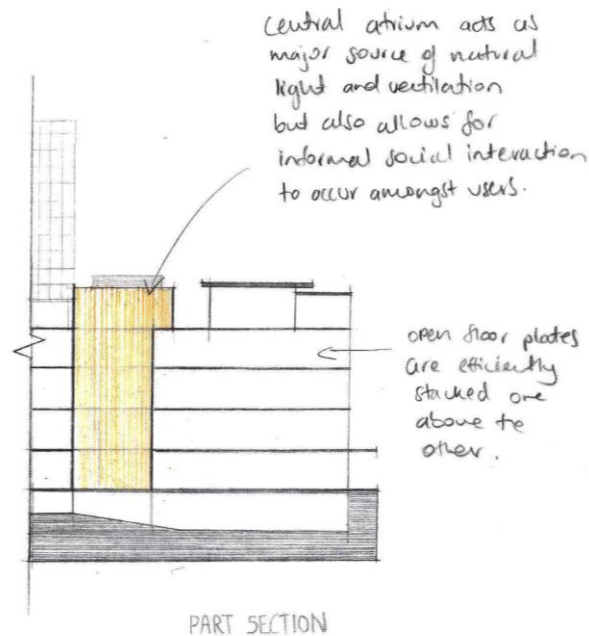 central atrium acts as
major source of natural
light and ventilation
but also allows for
informal social interaction
to occur amongst users.
open floor plates
are efficiently
stacked one
above the
other.
PART SECTION